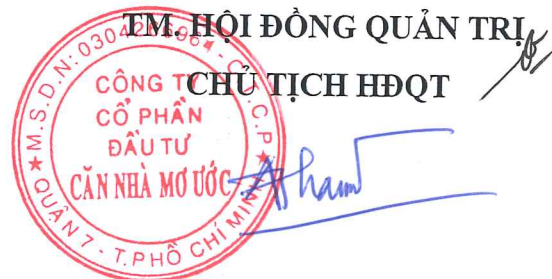 TM. HỘI ĐỒNG QUẢN TRỊ
CHỦ TỊCH HĐQT
M.S.D.N: - C.T.C.P
CÔNG TY
CỔ PHẦN
ĐẦU TƯ
CĂN NHÀ MƠ ƯỚC
QUẬN 7 - T.PHỒ CHÍ MINH